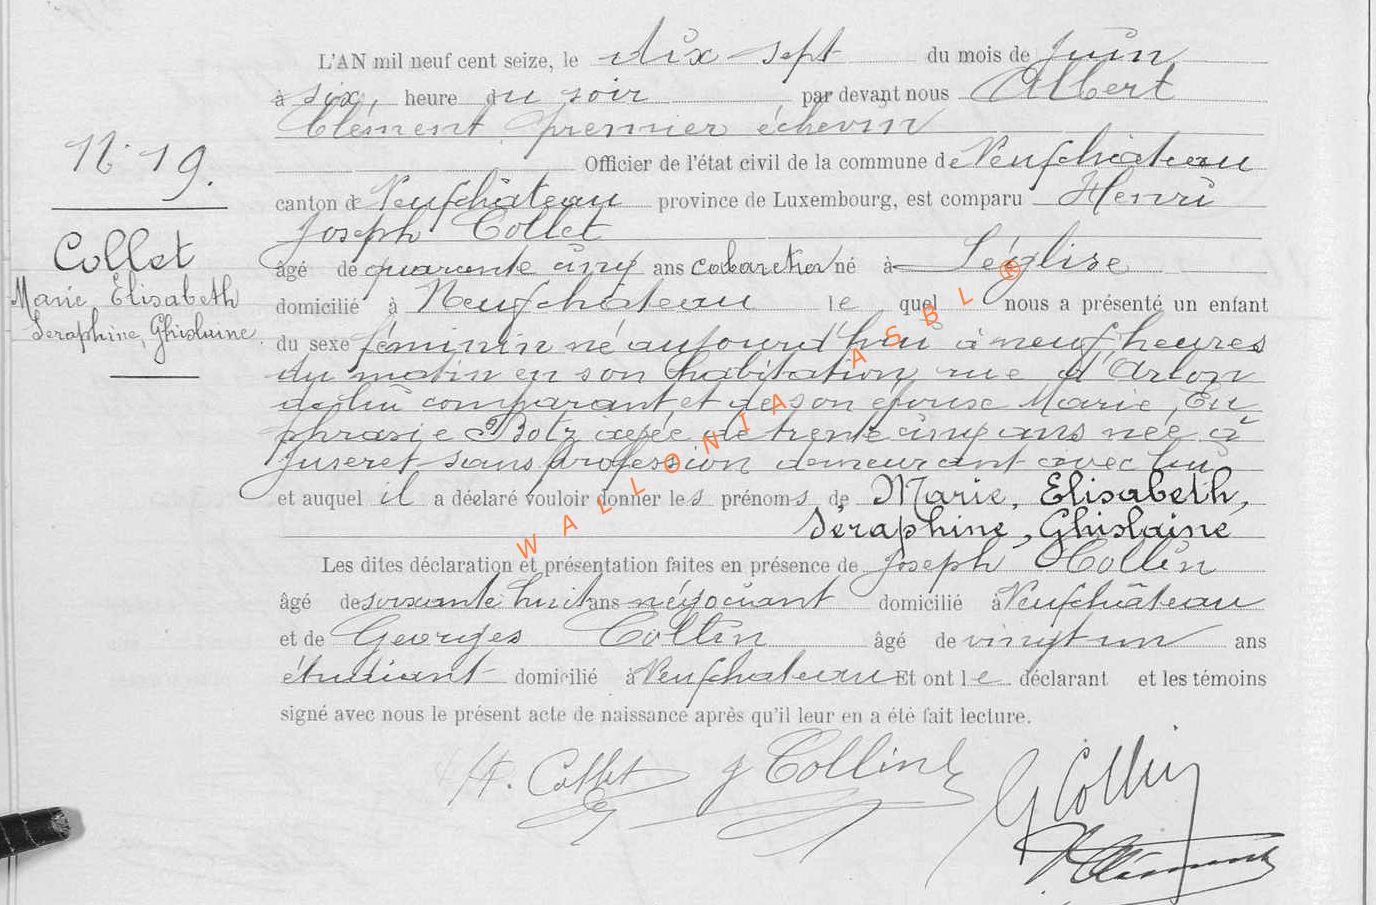 L'AN mil neuf cent seize, le dix sept du mois de Juin
à six, heure du soir par devant nous Albert
Clément premier échevin
Officier de l'état civil de la commune de Neufchâteau
canton de Neufchâteau province de Luxembourg, est comparu Henri
Joseph Collet
âgé de quarante cinq ans cabaretier né à Léglise
domicilié à Neufchateau lequel nous a présenté un enfant
du sexe féminin né aujourd'hui à neuf heures
du matin en son habitation rue d'Arlon
de lui comparant et de son épouse Marie, Eu
phrasie Bolz agée de trente cinq ans née à
Juseret sans profession demeurant avec lui
et auquel il a déclaré vouloir donner les prénoms de Marie, Elisabeth,
Séraphine, Ghislaine
Les dites déclaration et présentation faites en présence de Joseph Collin
âgé de soixante huit ans négociant domicilié à Neufchâteau
et de Georges Collin âgé de vingt un ans
étudiant domicilié à Neufchateau Et ont le déclarant et les témoins
signé avec nous le présent acte de naissance après qu'il leur en a été fait lecture.
H. Collet J Collin G Collin
A Clément
N° 19.
Collet
Marie, Elisabeth
Seraphine, Ghislaine.
WALLONIA ASBL ®